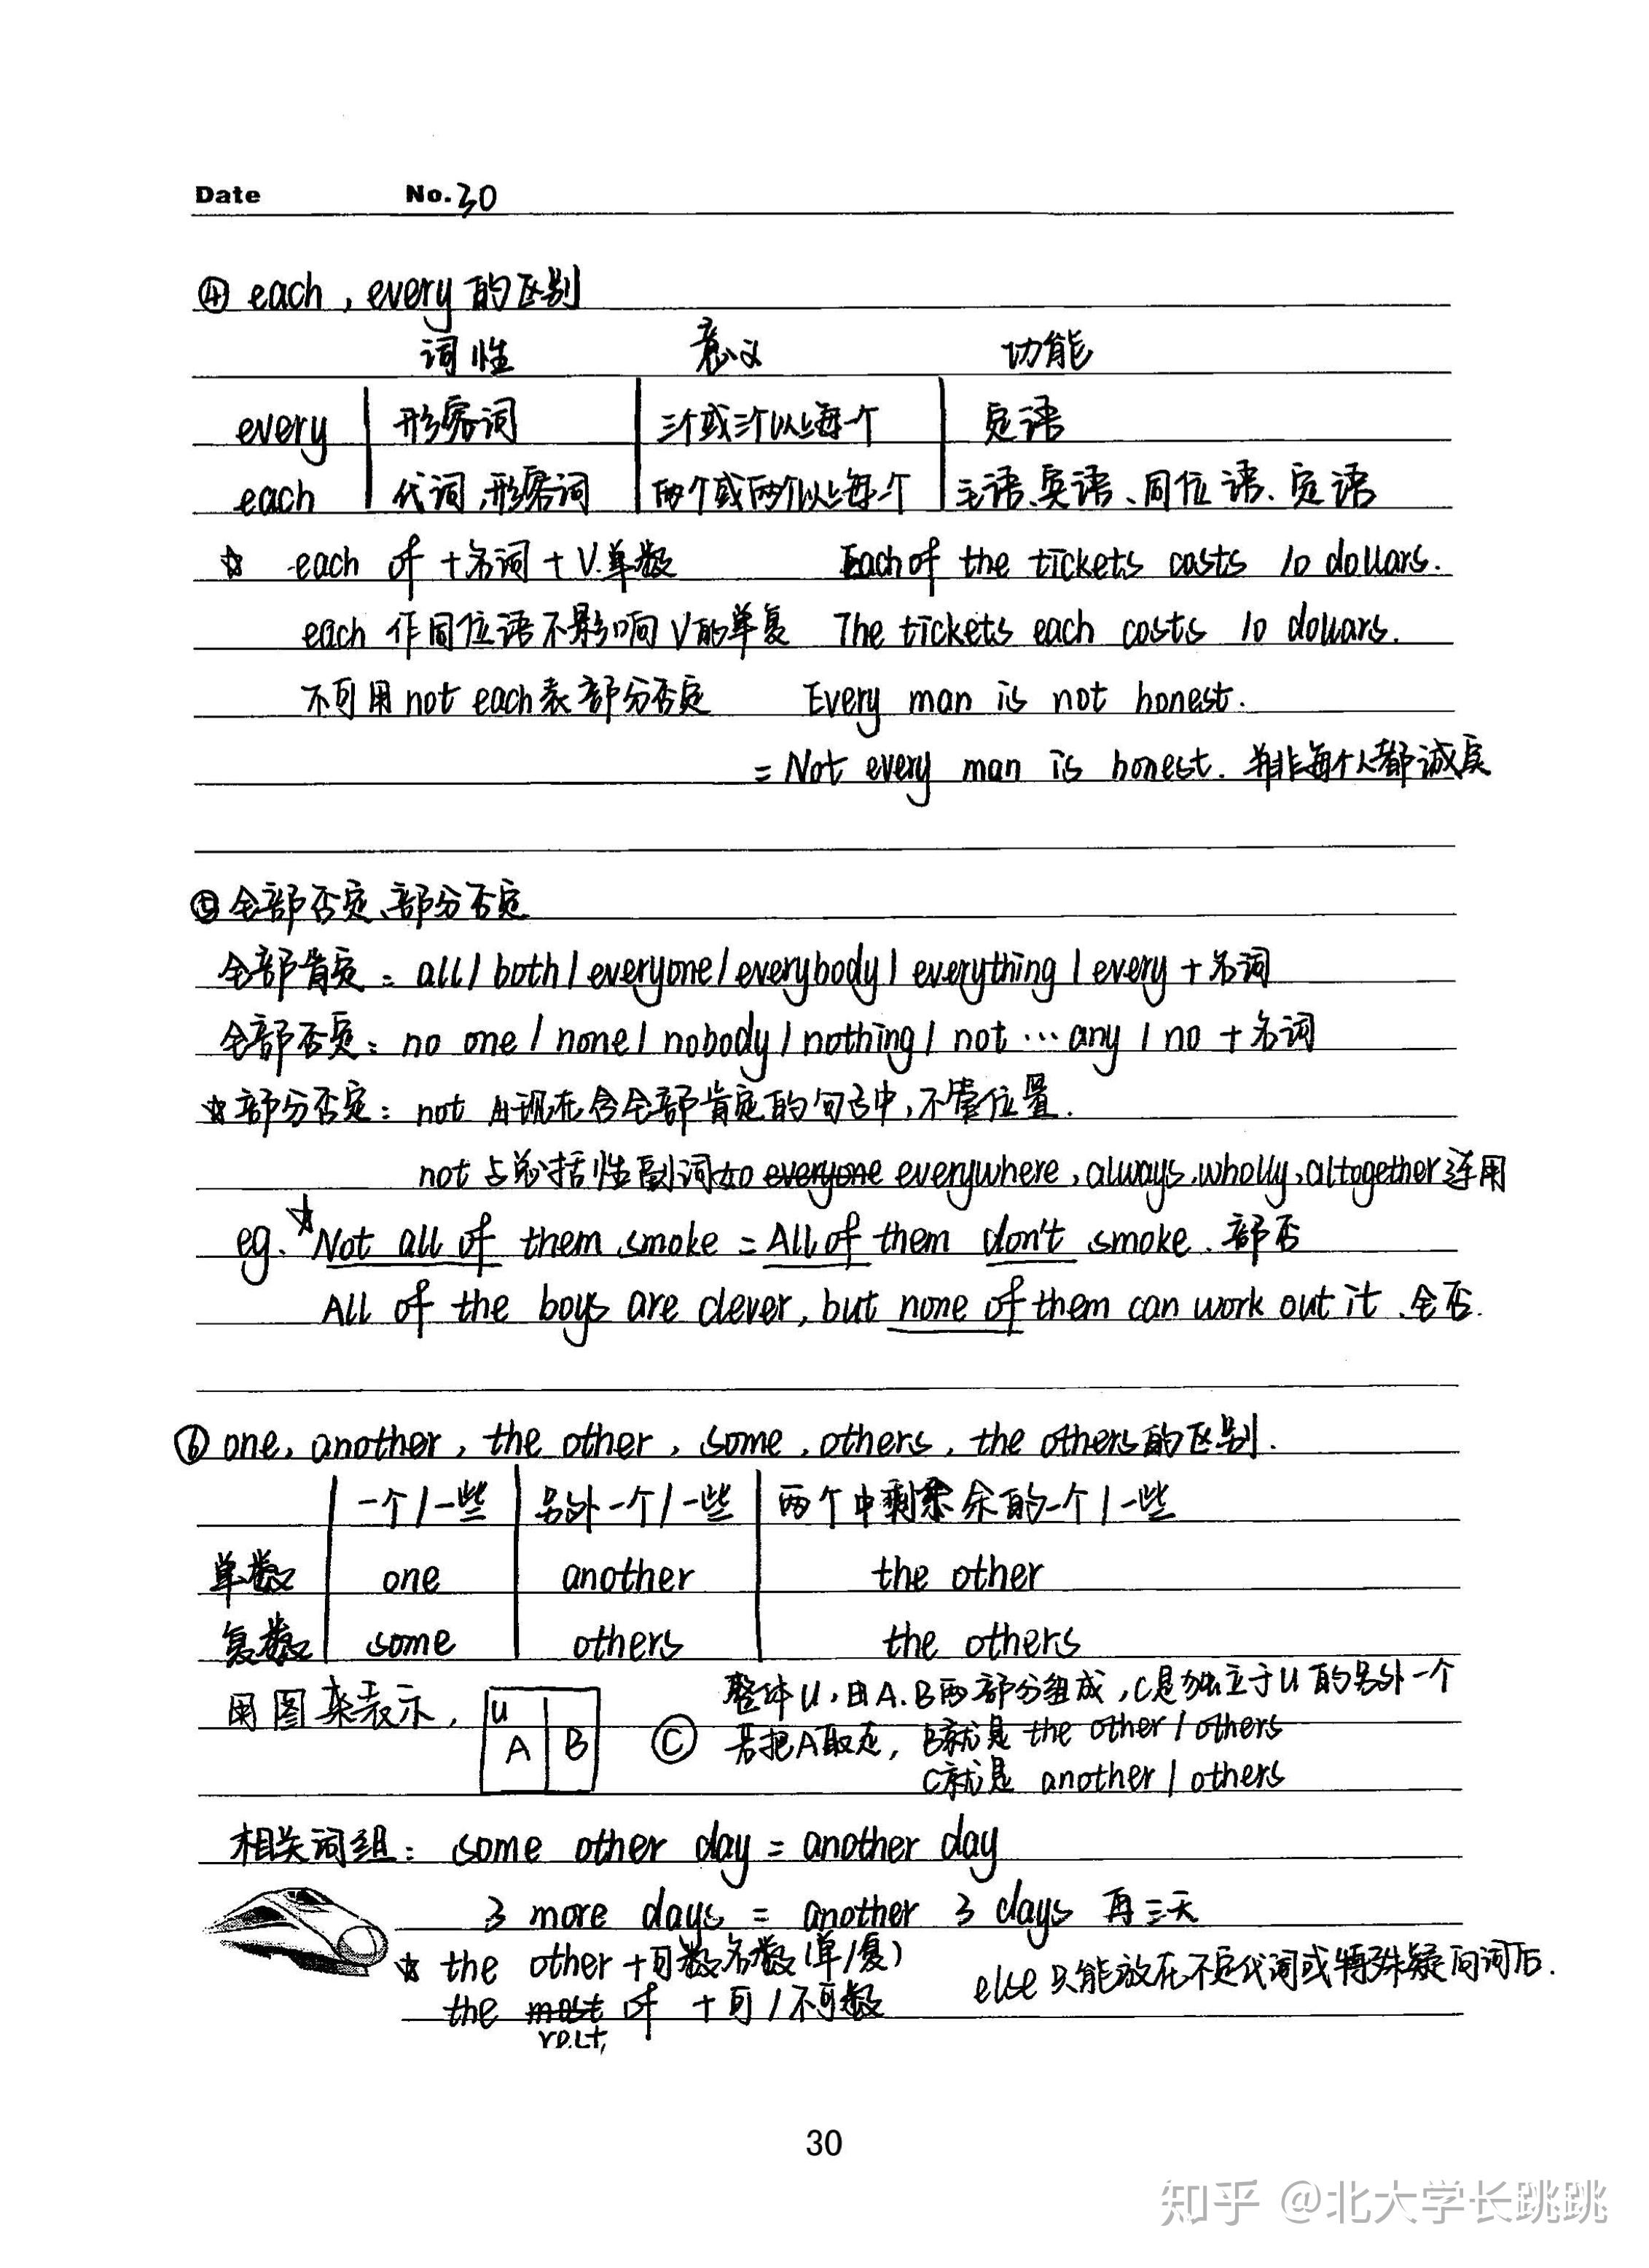 Date No.30
④ each, every的区别
词性 意义 功能
every 形容词 三个或三个以上每一个 定语
each 代词,形容词 两个或两个以上每一个 主语、宾语、同位语、定语
☆ each of +名词+V.单数 Each of the tickets costs 10 dollars.
each 作同位语不影响V的单复 The tickets each costs 10 dollars.
不可用not each表部分否定 Every man is not honest.
= Not every man is honest. 并非每个人都诚实
⑤全部否定、部分否定
全部肯定: all/both/everyone/everybody/everything/every+名词
全部否定: no one/none/nobody/nothing/not…any/no+名词
☆部分否定: not 出现在含全部肯定的句子中,不管位置.
not 与总括性副词如 everyone everywhere,always,wholly,altogether连用
eg. ☆Not all of them smoke = All of them don't smoke. 部否
All of the boys are clever, but none of them can work out it. 全否.
⑥ one, another, the other, some, others, the others的区别.
一个/一些 另外一个/一些 两个中剩余的一个/一些
单数 one another the other
复数 some others the others
用图来表示,
U
A B C
整体U,由A.B两部分组成,C是独立于U的另外一个
若把A取走, B就是 the other/others
C就是 another/others
相关词组: some other day = another day
3 more days = another 3 days 再三天
☆ the other +可数名数(单/复)
else只能放在不定代词或特殊疑问词后.
the most of +可/不可数
rest
30
知乎 @北大学长跳跳